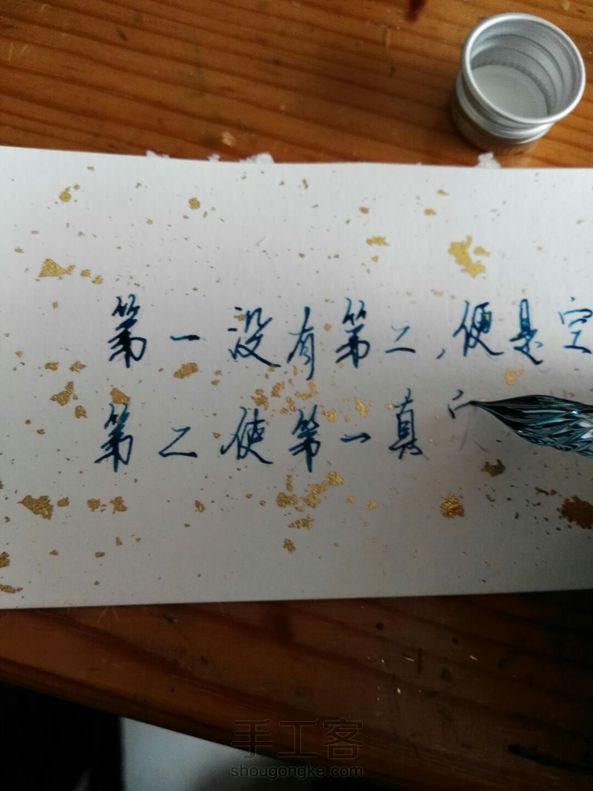 第一没有第二，便是空
第二使第一真
手工客
shougongke.com